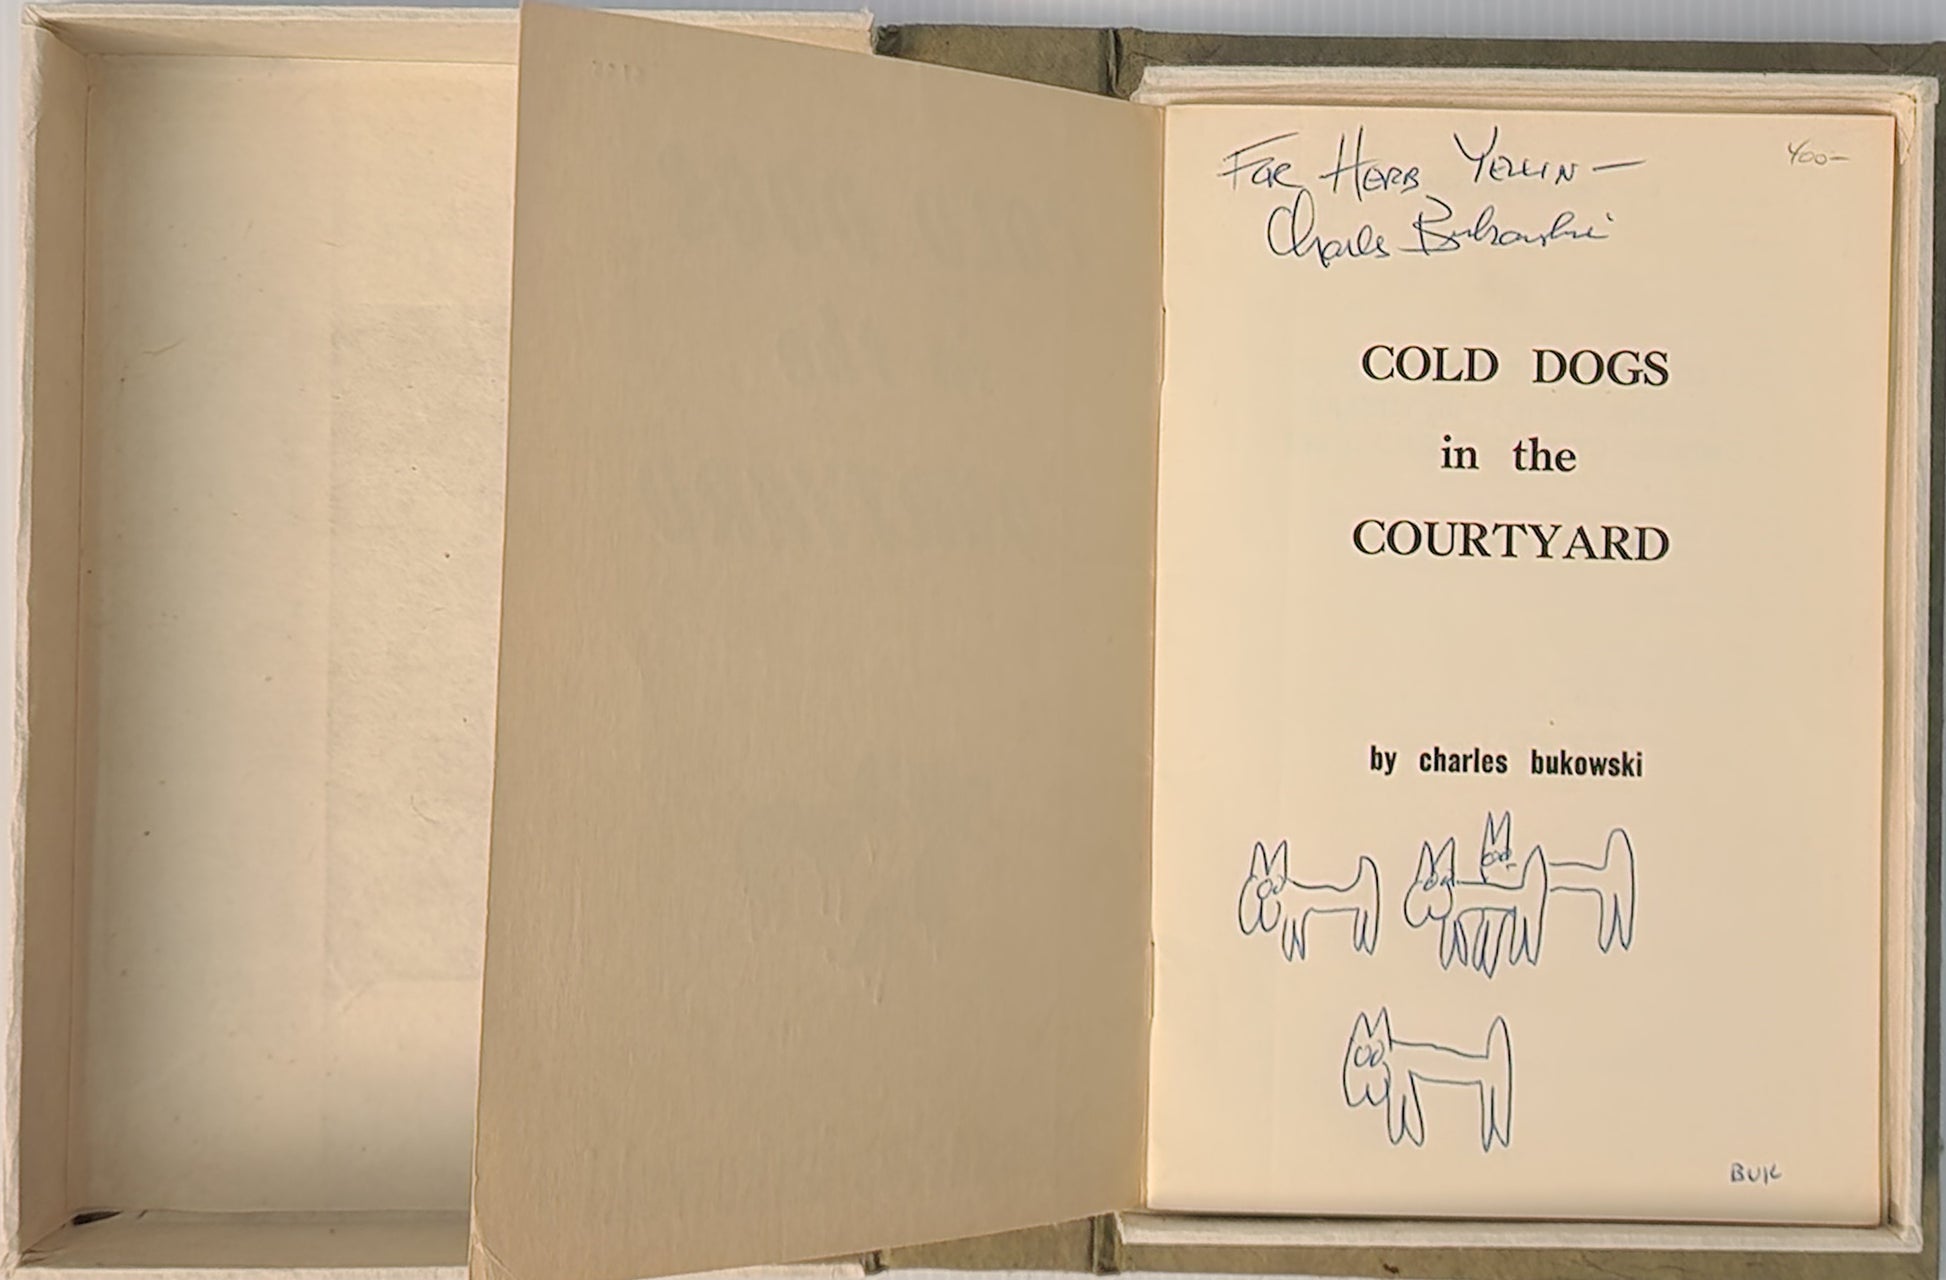 For Herb Yellin –
Charles Bukowski
400–
COLD DOGS
in the
COURTYARD
by charles bukowski
BUK